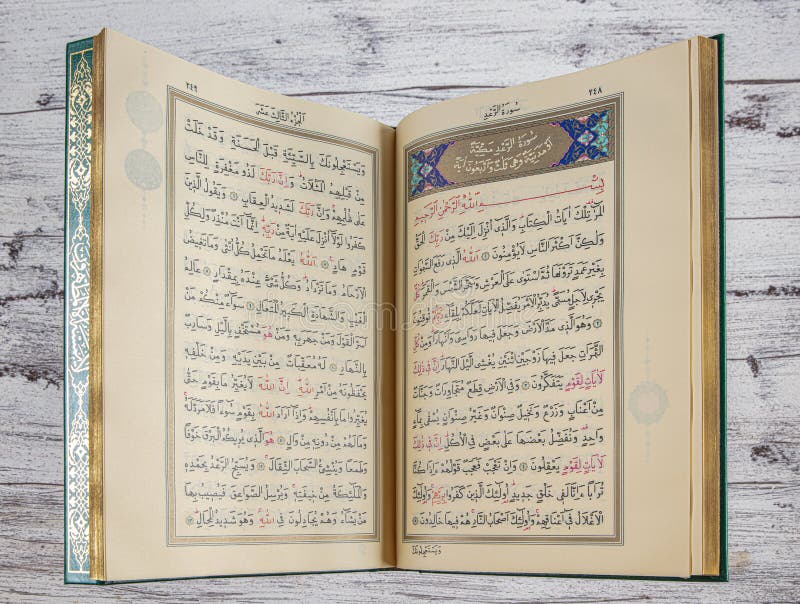 ٢٤٨
سورة الرعد
سُورَةُ الرَّعْدِ مَكِّيَّةٌ
اَوْ مَدَنِيَّةٌ وَهِيَ ثَلٰثٌ وَاَرْبَعُونَ اٰيَةً
بِسْمِ اللّٰهِ الرَّحْمٰنِ الرَّحِيمِ
الٓمٓرٰ تِلْكَ اٰيَاتُ الْكِتَابِ وَالَّذٖٓي اُنْزِلَ اِلَيْكَ مِنْ رَبِّكَ الْحَقُّ
وَلٰكِنَّ اَكْثَرَ النَّاسِ لَايُؤْمِنُونَ ۝ اَللّٰهُ الَّذٖي رَفَعَ السَّمٰوَاتِ
بِغَيْرِ عَمَدٍ تَرَوْنَهَا ثُمَّ اسْتَوٰى عَلَى الْعَرْشِ وَسَخَّرَ الشَّمْسَ وَالْقَمَرَ كُلٌّ
يَجْرٖي لِاَجَلٍ مُسَمًّى يُدَبِّرُ الْاَمْرَ يُفَصِّلُ الْاٰيَاتِ لَعَلَّكُمْ بِلِقَٓاءِ رَبِّكُمْ تُوقِنُونَ
۝ وَهُوَ الَّذٖي مَدَّ الْاَرْضَ وَجَعَلَ فٖيهَا رَوَاسِيَ وَاَنْهَارًا وَمِنْ كُلِّ
الثَّمَرَاتِ جَعَلَ فٖيهَا زَوْجَيْنِ اثْنَيْنِ يُغْشِي الَّيْلَ النَّهَارَ اِنَّ فٖي ذٰلِكَ
لَاٰيَاتٍ لِقَوْمٍ يَتَفَكَّرُونَ ۝ وَفِي الْاَرْضِ قِطَعٌ مُتَجَاوِرَاتٌ وَجَنَّاتٌ
مِنْ اَعْنَابٍ وَزَرْعٌ وَنَخٖيلٌ صِنْوَانٌ وَغَيْرُ صِنْوَانٍ يُسْقٰى بِمَٓاءٍ
وَاحِدٍ وَنُفَضِّلُ بَعْضَهَا عَلٰى بَعْضٍ فِي الْاُكُلِ اِنَّ فٖي ذٰلِكَ
لَاٰيَاتٍ لِقَوْمٍ يَعْقِلُونَ ۝ وَاِنْ تَعْجَبْ فَعَجَبٌ قَوْلُهُمْ ءَاِذَا كُنَّا
تُرَابًا ءَاِنَّا لَفٖي خَلْقٍ جَدٖيدٍ اُولٰٓئِكَ الَّذٖينَ كَفَرُوا بِرَبِّهِمْ وَاُولٰٓئِكَ
الْاَغْلَالُ فٖٓي اَعْنَاقِهِمْ وَاُولٰٓئِكَ اَصْحَابُ النَّارِ هُمْ فٖيهَا خَالِدُونَ ۝
ويستعجلونك
٢٤٩
الجزء الثالث عشر
وَيَسْتَعْجِلُونَكَ بِالسَّيِّئَةِ قَبْلَ الْحَسَنَةِ وَقَدْ خَلَتْ
مِنْ قَبْلِهِمُ الْمَثُلَاتُ وَاِنَّ رَبَّكَ لَذُو مَغْفِرَةٍ لِلنَّاسِ
عَلٰى ظُلْمِهِمْ وَاِنَّ رَبَّكَ لَشَدٖيدُ الْعِقَابِ ۝ وَيَقُولُ الَّذٖينَ
كَفَرُوا لَوْلَٓا اُنْزِلَ عَلَيْهِ اٰيَةٌ مِنْ رَبِّهٖ اِنَّمَٓا اَنْتَ مُنْذِرٌ وَلِكُلِّ
قَوْمٍ هَادٍ ۝ اَللّٰهُ يَعْلَمُ مَا تَحْمِلُ كُلُّ اُنْثٰى وَمَا تَغٖيضُ
الْاَرْحَامُ وَمَا تَزْدَادُ وَكُلُّ شَيْءٍ عِنْدَهُ بِمِقْدَارٍ ۝ عَالِمُ
الْغَيْبِ وَالشَّهَادَةِ الْكَبٖيرُ الْمُتَعَالِ ۝ سَوَٓاءٌ مِنْكُمْ مَنْ
اَسَرَّ الْقَوْلَ وَمَنْ جَهَرَ بِهٖ وَمَنْ هُوَ مُسْتَخْفٍ بِالَّيْلِ وَسَارِبٌ
بِالنَّهَارِ ۝ لَهُ مُعَقِّبَاتٌ مِنْ بَيْنِ يَدَيْهِ وَمِنْ خَلْفِهٖ
يَحْفَظُونَهُ مِنْ اَمْرِ اللّٰهِ اِنَّ اللّٰهَ لَايُغَيِّرُ مَا بِقَوْمٍ حَتّٰى
يُغَيِّرُوا مَا بِاَنْفُسِهِمْ وَاِذَٓا اَرَادَ اللّٰهُ بِقَوْمٍ سُٓوءًا فَلَا مَرَدَّ لَهُ
وَمَا لَهُمْ مِنْ دُونِهٖ مِنْ وَالٍ ۝ هُوَ الَّذٖي يُرٖيكُمُ الْبَرْقَ خَوْفًا
وَطَمَعًا وَيُنْشِئُ السَّحَابَ الثِّقَالَ ۝ وَيُسَبِّحُ الرَّعْدُ بِحَمْدِهٖ
وَالْمَلٰٓئِكَةُ مِنْ خٖيفَتِهٖ وَيُرْسِلُ الصَّوَاعِقَ فَيُصٖيبُ بِهَا
مَنْ يَشَٓاءُ وَهُمْ يُجَادِلُونَ فِي اللّٰهِ وَهُوَ شَدٖيدُ الْمِحَالِ ۝
dreamstime